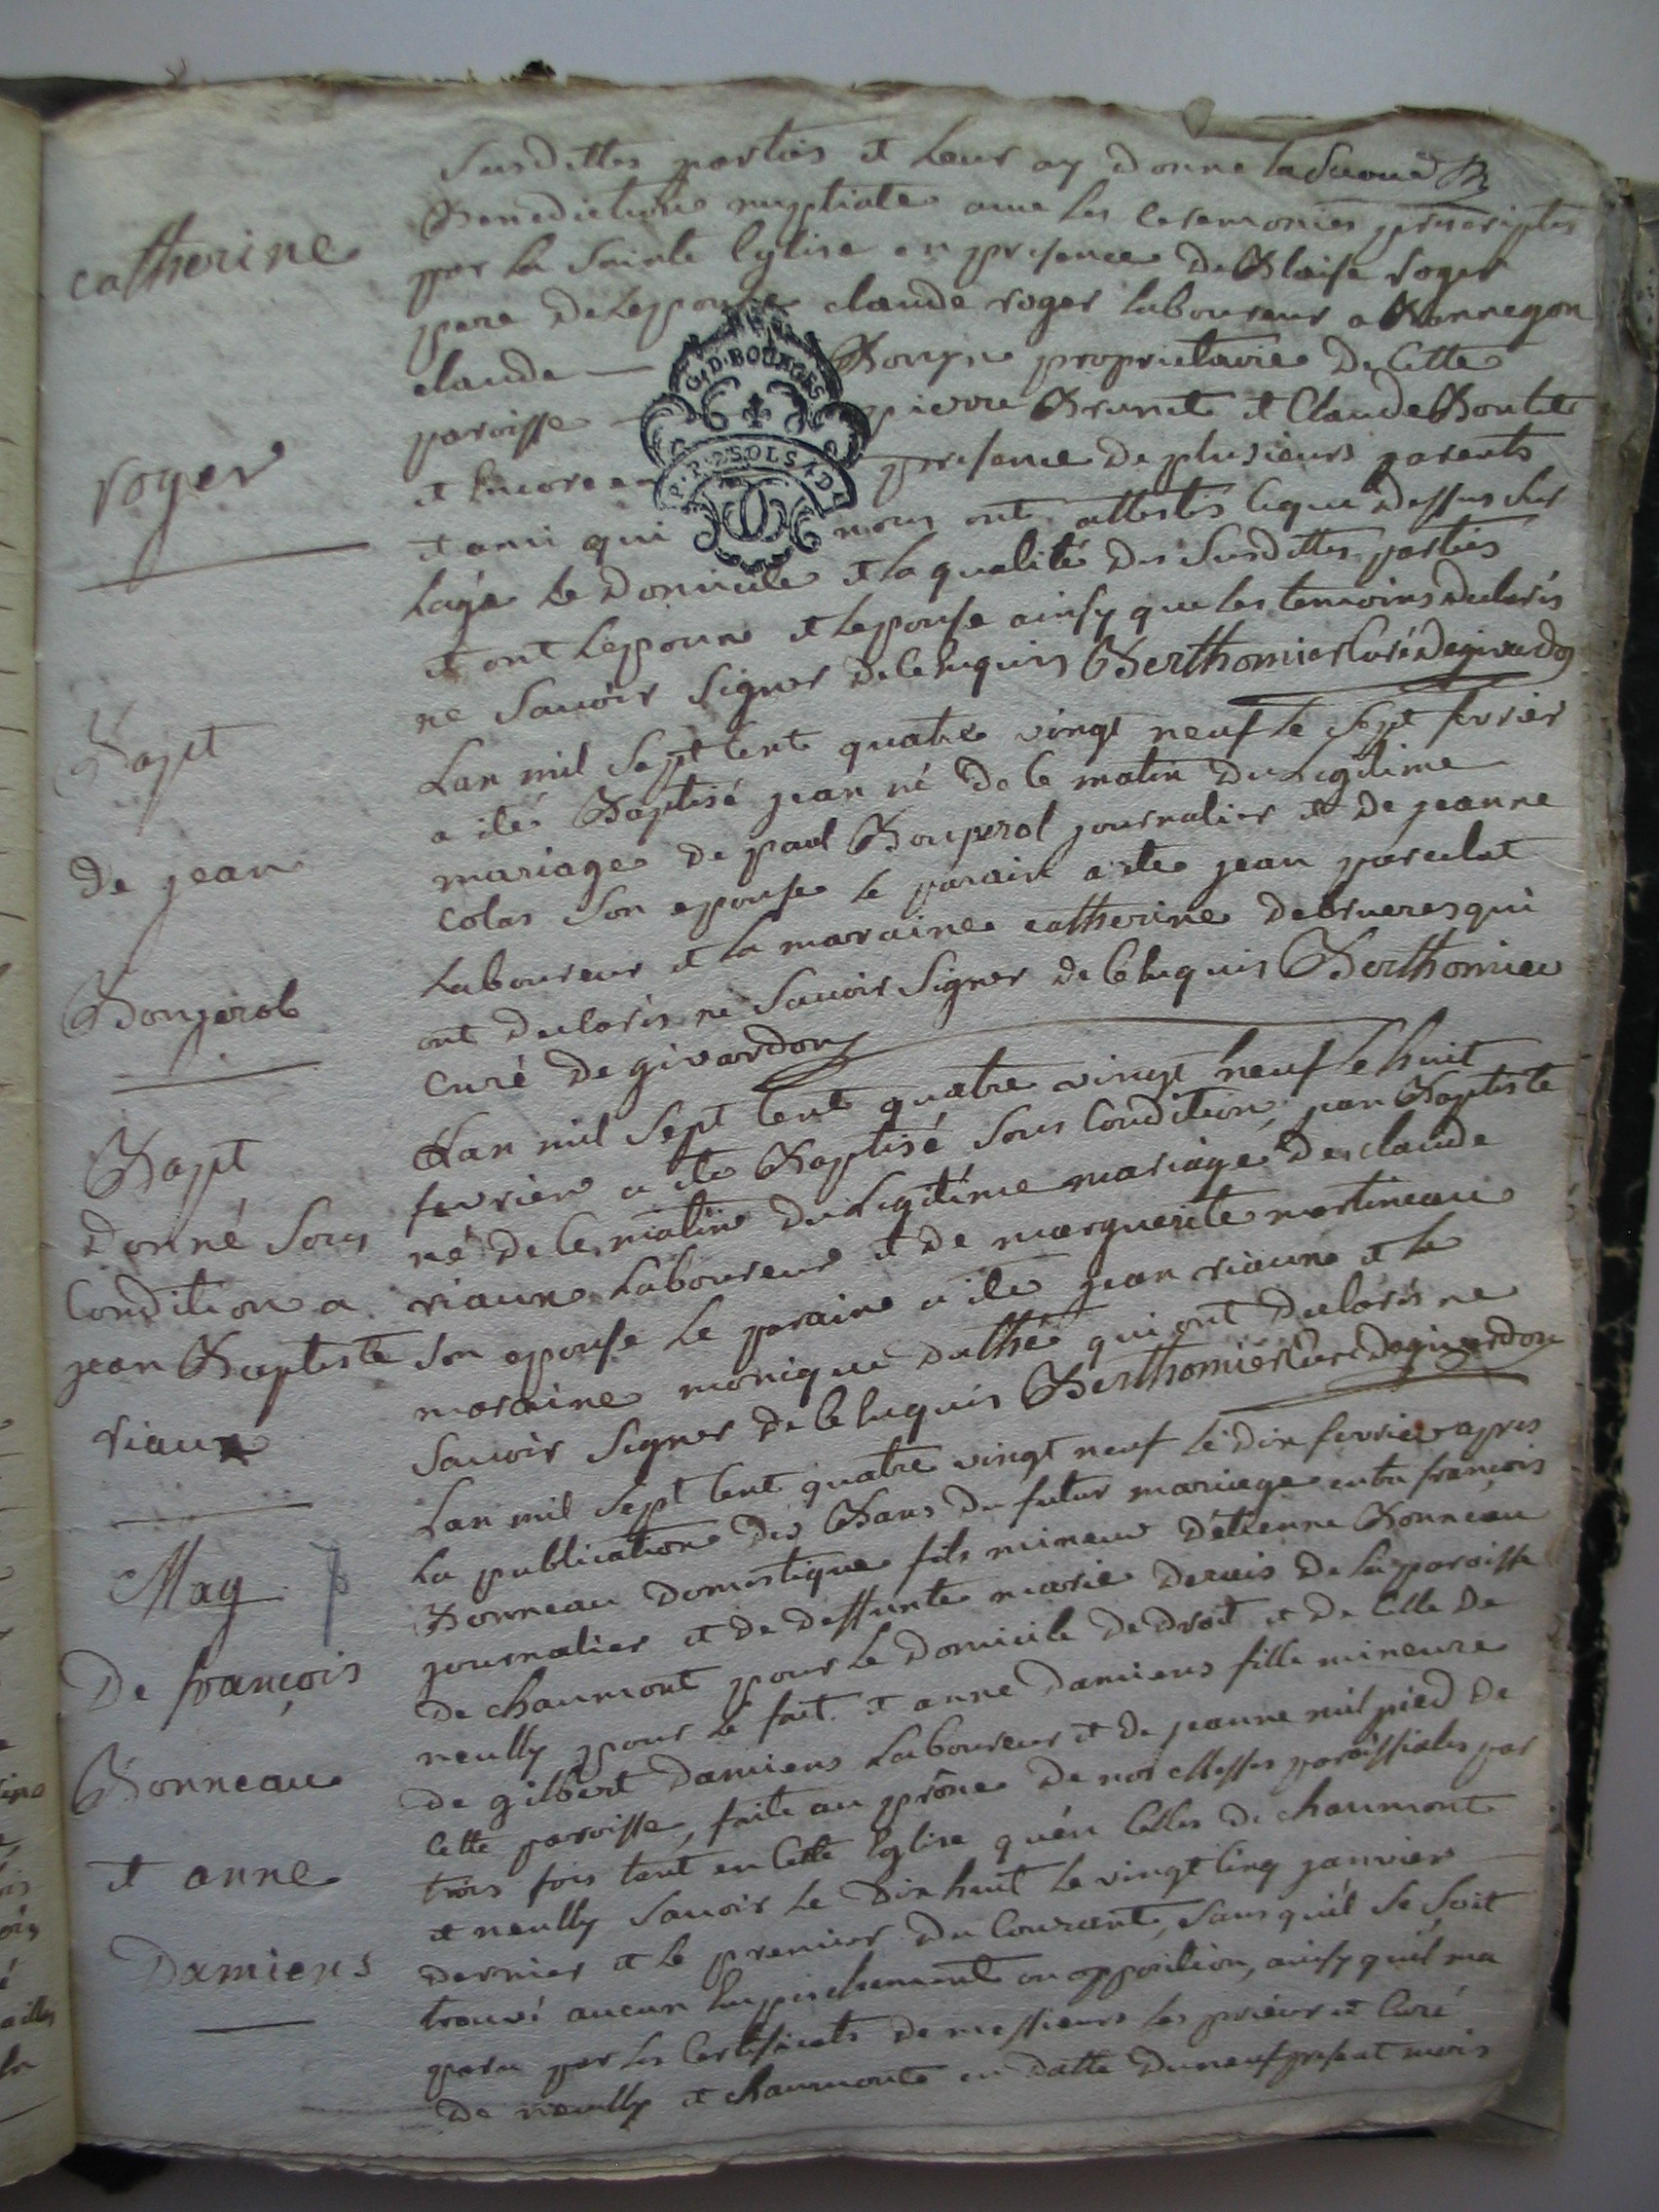 Susdittes parties et leur ay donné la
Benediction nuptiale avec les ceremonies prescriptes
catherine
par la Sainte Eglise en presence de Blaise roger
pere de l'epouse claude roger laboureur a Bannegon
claude proprietaire de Cette
paroisse pierre Brunet et Claude Boulet
roger
et encore en presence de plusieurs parents
et ami qui nous ont attestés ce que dessus sur
lage le domicile et la qualité des susdittes parties
et ont lepoux et lepouse ainsy que les temoins declarés
ne Savoir Signer de ce enquis Berthomier Curé de givardon
Bapt
de jean
Bouperol
Lan mil Sept Cent quatre vingt neuf le Sept fevrier
a été Baptisé jean né de ce matin du Legitime
mariage de paul Bouperol journalier et de jeanne
colas Son epouse le parain a été jean
laboureur et la maraine catherine debrueres qui
ont declarés ne Savoir Signer de ce enquis Berthomier
curé de givardon
Bapt
donné Sous
Condition a
jean Baptiste
riaux
Lan mil Sept Cent quatre vingt neuf le huit
fevrier a été Baptisé Sous Condition jean Baptiste
né de ce matin du Legitime mariage de claude
riaux Laboureur et de marguerite martineau
Son epouse le parain a été jean riaux et la
maraine monique duthé qui ont declarés ne
Savoir Signer de ce enquis Berthomier Curé de givardon
Mag
De françois
Bonneau
et anne
Damiens
Lan mil Sept Cent quatre vingt neuf le dix fevrier apres
La publication des Bans du futur mariage entre françois
Bonneau domestique fils mineur d'etienne Bonneau
journalier et de deffunte marie de la paroisse
de chaumont pour le domicile de droit et de Celle de
neuilly pour le fait et anne Damiens fille mineure
de gilbert Damiens Laboureur et de jeanne mil pied de
Cette paroisse, faite au prône de nos Messes paroissiales par
trois fois tant en Cette Eglise qu'en Celles de chaumont
et neuilly Savoir le dix huit le vingt Cinq janvier
dernier et le premier du Courant, Sans qu'il Se Soit
trouvé aucun Empechement ou opposition, ainsy qu'il ma
paru par les Certificats de messieurs les prieur et Curé
de neuilly et chaumont en datte du neuf present mois
G. D. BOURGES